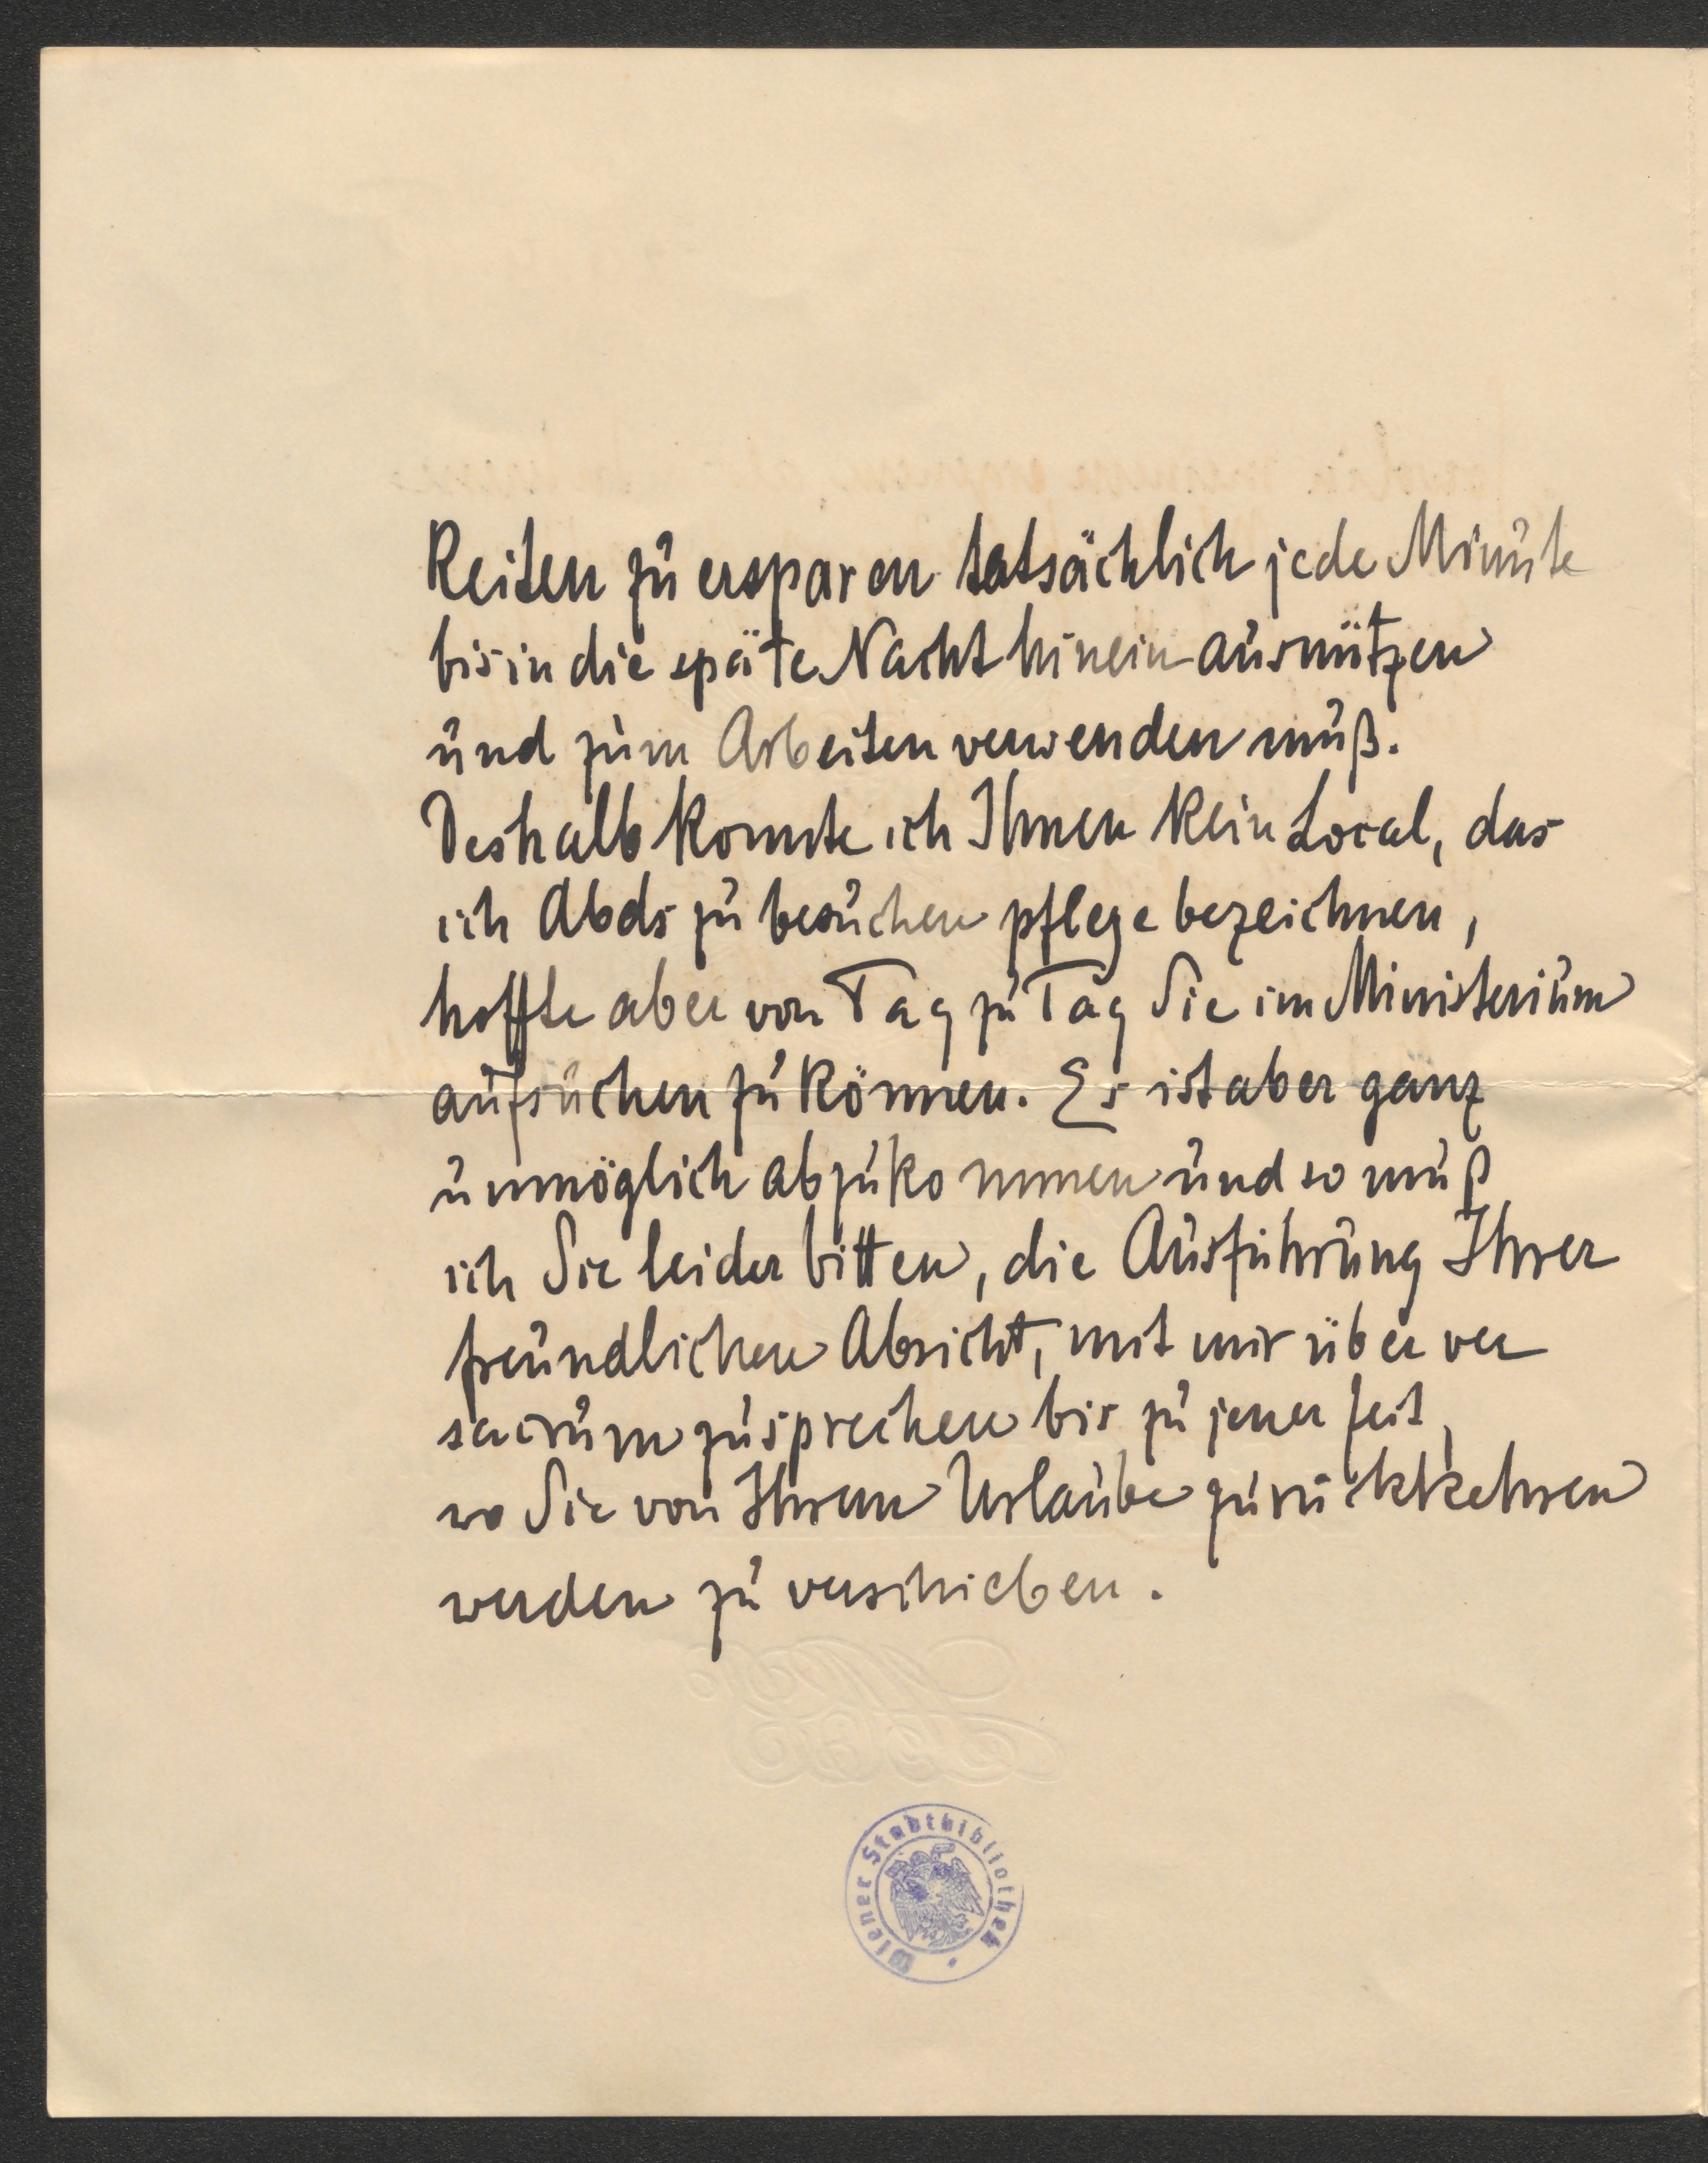 Reiten zu ersparen tatsächlich jede Minute
bis in die späte Nacht hinein ausnützen
und zum Arbeiten verwenden muß.
Deshalb konnte ich Ihnen kein Local, das
ich Abds zu besuchen pflege bezeichnen,
hoffte aber von Tag zu Tag Sie im Ministerium
aufsuchen zu können. Es ist aber ganz
unmöglich abzukommen und so muß
ich Sie leider bitten, die Ausführung Ihrer
freundlichen Absicht, mit mir über ver
sacrum zu sprechen bis zu jener Zeit,
wo Sie von Ihrem Urlaube zurückkehren
werden zu verschieben.
Wiener Stadtbibliothek